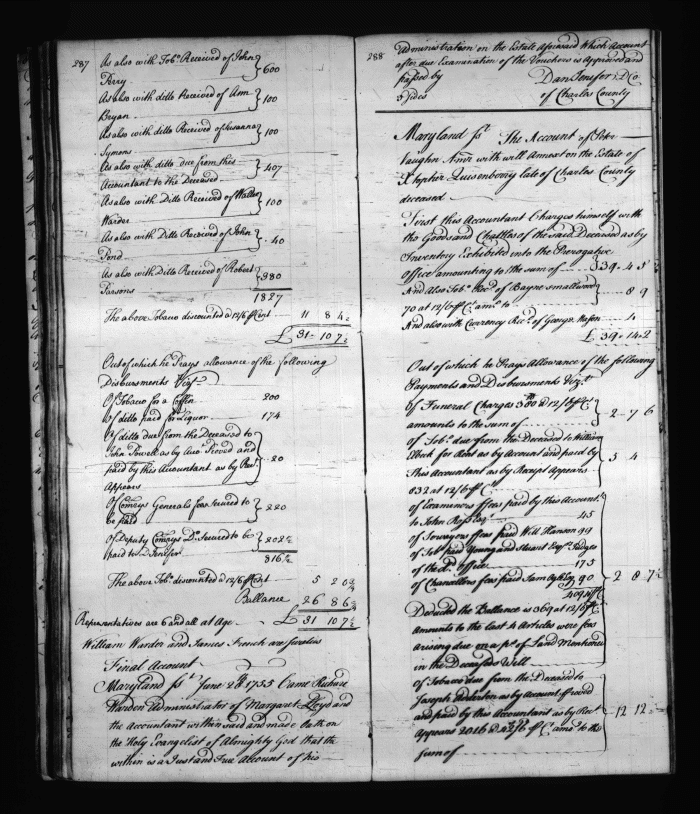 287
As also with Tobo Received of John
Perry } 600
As also with ditto Received of Ann
Bryan } 100
As also with ditto Received of Susanna
Symons } 100
As also with ditto due from this
Accountant to the Deceased } 407
As also with Ditto Received of Walter
Warder } 100
As also with Ditto Received of John
Pond } 40
As also with Ditto Received of Robert
Parsons } 380
1827
The above Tobacco discounted a 12/6 ⅌ Cent 11 8 4½
£ 31 10 7½
Out of which he Prays allowance of the following
Disbursments Vizt
Of Tobacco for a Coffin 200
Of ditto paid for Liquor 174
Of ditto due from the Deceased to
John Powell as by Acct Proved and
paid by this Accountant as by Rect
Appears } 20
Of Comrys Generals fees secured to
be paid } 220
Of Deputy Comrys Do Secured to be
paid to D Jenifer } 202½
816½
The above Tobo discounted a 12/6 ⅌ Cent 5 2 0¾
Ballance 26 8 6¾
Representatives are 6 and all at Age £ 31 10 7½
William Warder and James French are Sureties
Final Account
Maryland sst June 28th 1755 Came Richard
Warden Administrator of Margaret Lloyd and
the accountant within said and made Oath on
the Holy Evangelist of Almighty God that the
within is a Just and True Account of his
288
Administration on the Estate aforesaid Which Account
after due Examination of the Vouchers is Approved and
passed by Dan Jenifer D Co
3 sides of Charles County
Maryland sst The Account of Peter
Vaughn Amr with will Annext on the Estate of
Xtopher Quisenberry late of Charles County
deceased
First this Accountant Charges himself with
the Goods and Chattles of the said Deceased as by
Inventory Exhibited into the Prerogative
office amounting to the sum of } 39 4 5
And Also Tobo Recd of Bayne Smallwood
70 at 12/6 ⅌ Ct amts to 8 9
And also with Currency Recd of George Mason 1
£ 39 14 2
Out of which he Prays Allowance of the following
Payments and Disbursments Vizt
Of Funeral Charges 380 a 12/6 ⅌ Ct
amounts to the sum of } 2 7 6
of Tobo due from the Deceased to William
Elock for Rent as by Account and paid by
This Accountant as by Receipt Appears
832 at 12/6 ⅌ Ct } 5 4
of Examiners ffees paid by this Account
to John Ross Esqr 45
of Surveyors ffees paid Will Hanson 99
of Tobo paid Young and Stuart Esqrs Judges
of the Ld office 175
of Chancellors fees paid Sam Ogle Esqr 90
409
Deducted the Ballance is 369 at 12/6 ⅌ Ct
amounts to the last 4 Articles were fees
arising due on a ps of Land Mentioned
in the Deceaseds Will } 2 8 7½
of Tobacco due from the Deceased to
Joseph as by Account proved
and paid by this Accountant as by Rect
Appears 2016 a 12/6 ⅌ Ct amts to the
sum of } 12 12